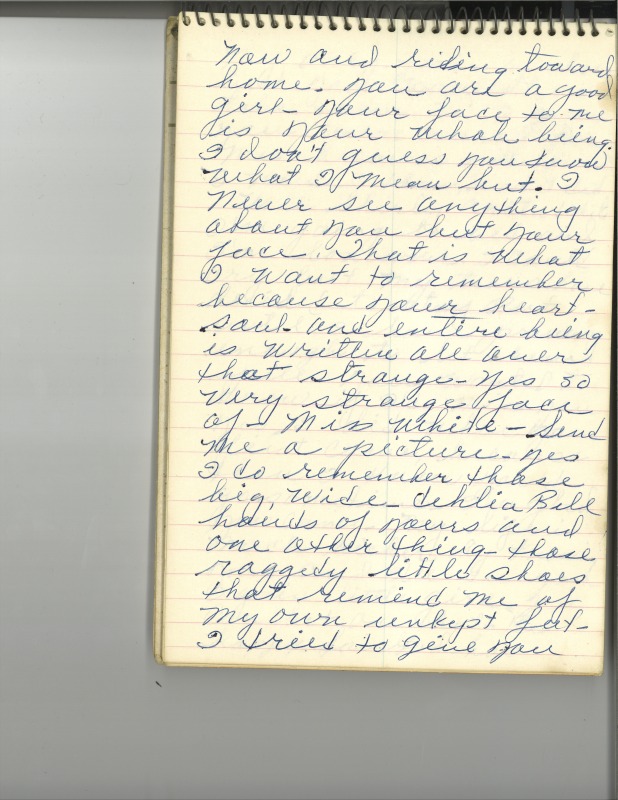 now and riding toward
home. You are a good
girl - your face to me
is your whole being.
I don't guess you know
what I mean but. I
never see anything
about you but your
face. That is what
I want to remember
because your heart-
soul and entire being
is written all over
that strange - yes so
very strange face
of - Miss White - Send
me a picture - yes
I do remember those
big, wide - dehlia Bell
hands of yours and
one other thing - those
raggedy little shoes
that remind me of
my own unkept feet -
I tried to give you